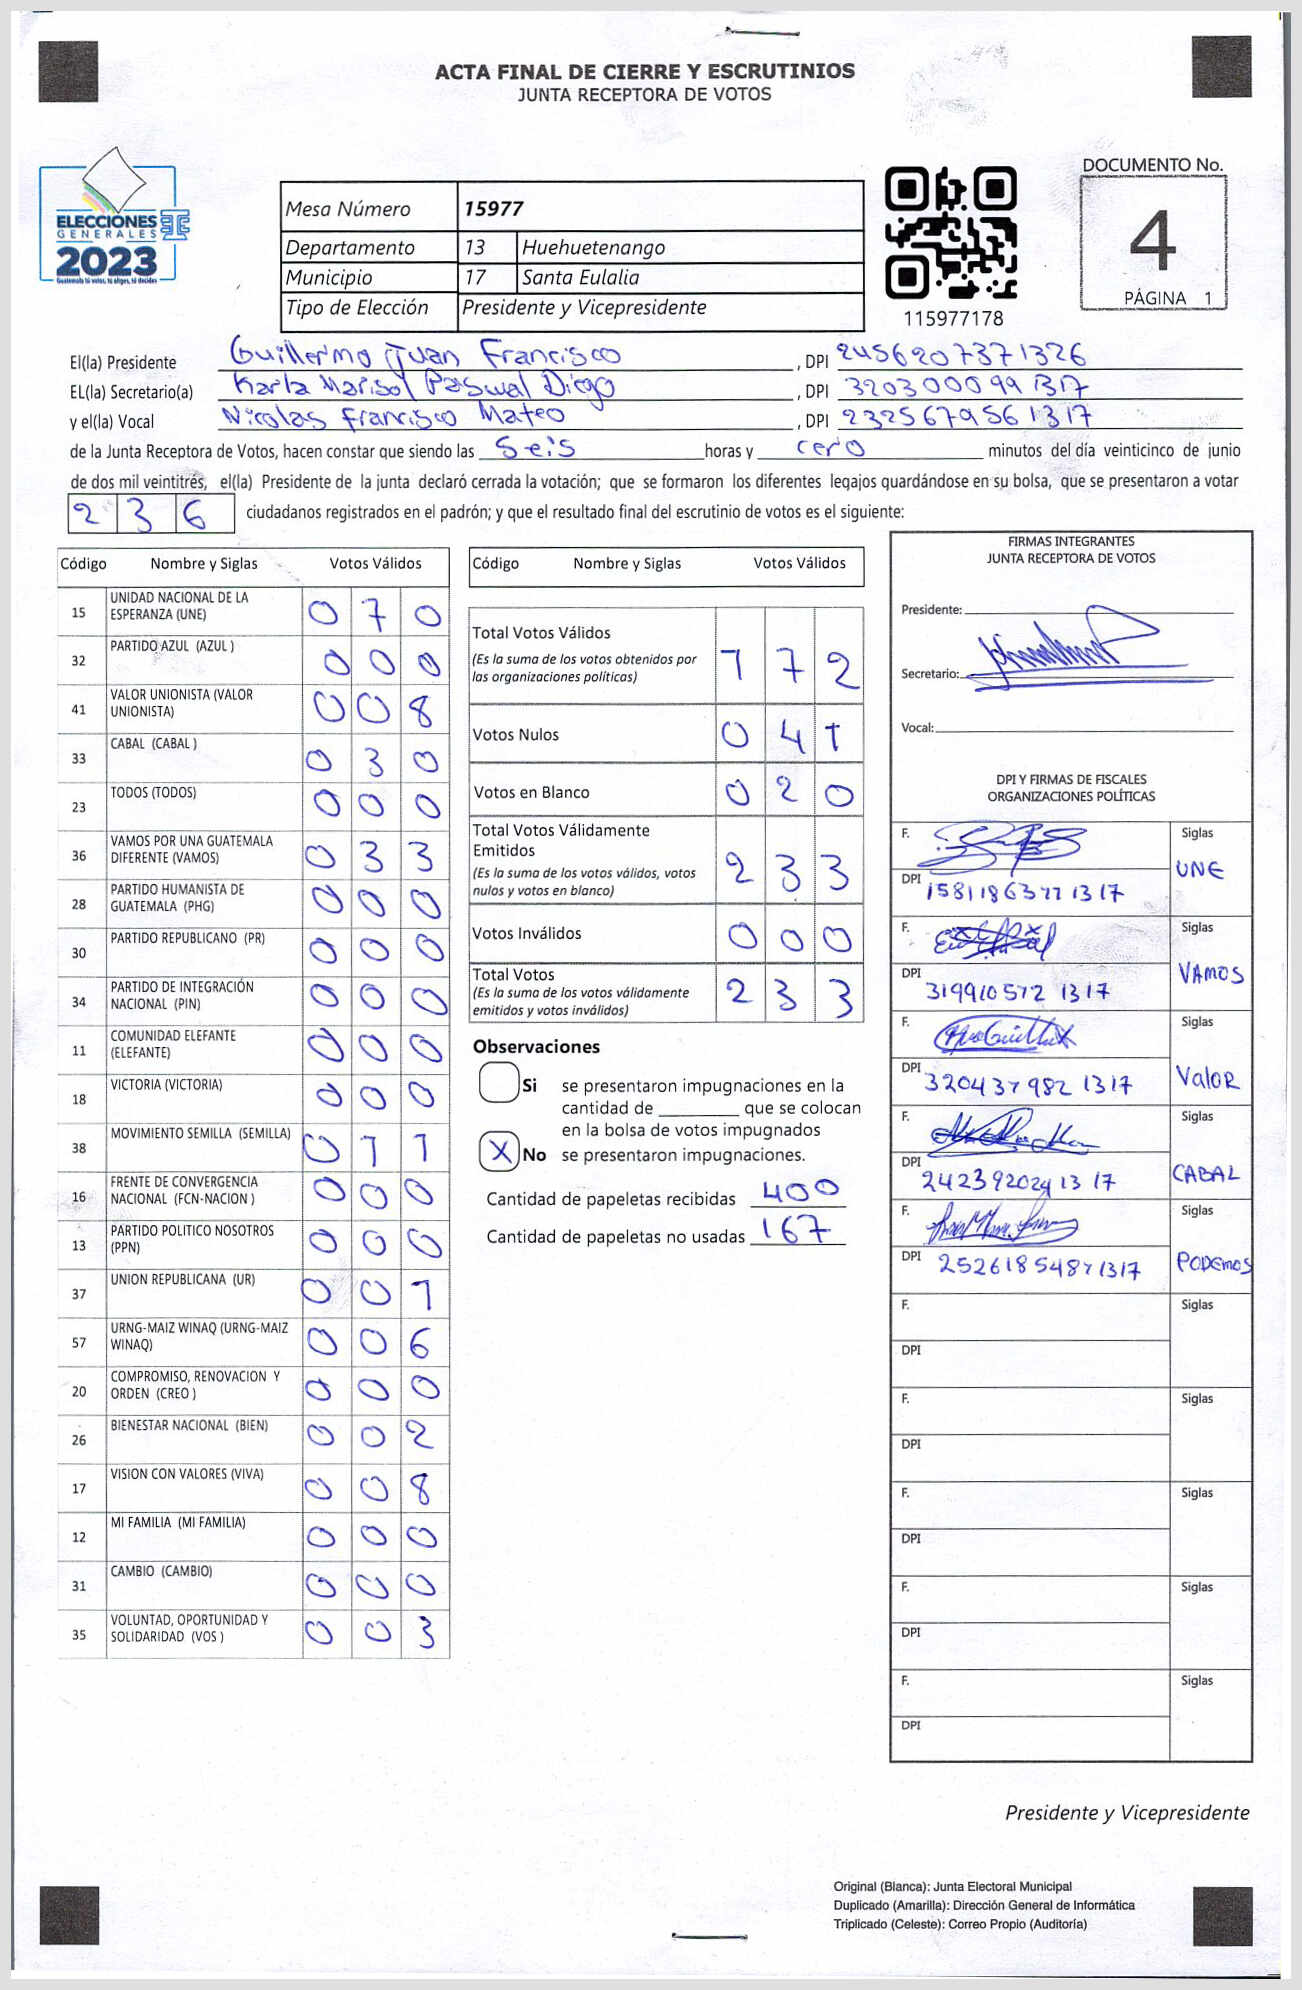 ACTA FINAL DE CIERRE Y ESCRUTINIOS
JUNTA RECEPTORA DE VOTOS
ELECCIONES
GENERALES
2023
Guatemala tú votas, tú eliges, tú decides
Mesa Número 15977
Departamento 13 Huehuetenango
Municipio 17 Santa Eulalia
Tipo de Elección Presidente y Vicepresidente
115977178
DOCUMENTO No.
4
PÁGINA 1
El(la) Presidente Guillermo Juan Francisco , DPI 2456207371326
EL(la) Secretario(a) Karla Marisol Pascual Diego , DPI 3203000991317
y el(la) Vocal Nicolas Francisco Mateo , DPI 2325679561317
de la Junta Receptora de Votos, hacen constar que siendo las Seis horas y cero minutos del día veinticinco de junio
de dos mil veintitrés, el(la) Presidente de la junta declaró cerrada la votación; que se formaron los diferentes legajos guardándose en su bolsa, que se presentaron a votar
236 ciudadanos registrados en el padrón; y que el resultado final del escrutinio de votos es el siguiente:
Código Nombre y Siglas Votos Válidos
15 UNIDAD NACIONAL DE LA ESPERANZA (UNE) 0 7 0
32 PARTIDO AZUL (AZUL ) 0 0 0
41 VALOR UNIONISTA (VALOR UNIONISTA) 0 0 8
33 CABAL (CABAL ) 0 3 0
23 TODOS (TODOS) 0 0 0
36 VAMOS POR UNA GUATEMALA DIFERENTE (VAMOS) 0 3 3
28 PARTIDO HUMANISTA DE GUATEMALA (PHG) 0 0 0
30 PARTIDO REPUBLICANO (PR) 0 0 0
34 PARTIDO DE INTEGRACIÓN NACIONAL (PIN) 0 0 0
11 COMUNIDAD ELEFANTE (ELEFANTE) 0 0 0
18 VICTORIA (VICTORIA) 0 0 0
38 MOVIMIENTO SEMILLA (SEMILLA) 0 1 1
16 FRENTE DE CONVERGENCIA NACIONAL (FCN-NACION ) 0 0 0
13 PARTIDO POLITICO NOSOTROS (PPN) 0 0 0
37 UNION REPUBLICANA (UR) 0 0 1
57 URNG-MAIZ WINAQ (URNG-MAIZ WINAQ) 0 0 6
20 COMPROMISO, RENOVACION Y ORDEN (CREO ) 0 0 0
26 BIENESTAR NACIONAL (BIEN) 0 0 2
17 VISION CON VALORES (VIVA) 0 0 8
12 MI FAMILIA (MI FAMILIA) 0 0 0
31 CAMBIO (CAMBIO) 0 0 0
35 VOLUNTAD, OPORTUNIDAD Y SOLIDARIDAD (VOS ) 0 0 3
Código Nombre y Siglas Votos Válidos
Total Votos Válidos 1 7 2
(Es la suma de los votos obtenidos por
las organizaciones políticas)
Votos Nulos 0 4 1
Votos en Blanco 0 2 0
Total Votos Válidamente
Emitidos 2 3 3
(Es la suma de los votos válidos, votos
nulos y votos en blanco)
Votos Inválidos 0 0 0
Total Votos 2 3 3
(Es la suma de los votos válidamente
emitidos y votos inválidos)
Observaciones
Si se presentaron impugnaciones en la
cantidad de ________ que se colocan
en la bolsa de votos impugnados
X No se presentaron impugnaciones.
Cantidad de papeletas recibidas 400
Cantidad de papeletas no usadas 167
FIRMAS INTEGRANTES
JUNTA RECEPTORA DE VOTOS
Presidente:
Secretario:
Vocal:
DPI Y FIRMAS DE FISCALES
ORGANIZACIONES POLÍTICAS
F. Siglas
DPI UNE
F. Siglas
DPI 319910572 1317 VAMOS
F. Siglas
DPI 320437982 1317 Valor
F. Siglas
DPI 242392024 1317 CABAL
F. Siglas
DPI PODEMOS
F. Siglas
DPI
F. Siglas
DPI
F. Siglas
DPI
F. Siglas
DPI
F. Siglas
DPI
Presidente y Vicepresidente
Original (Blanca): Junta Electoral Municipal
Duplicado (Amarilla): Dirección General de Informática
Triplicado (Celeste): Correo Propio (Auditoría)